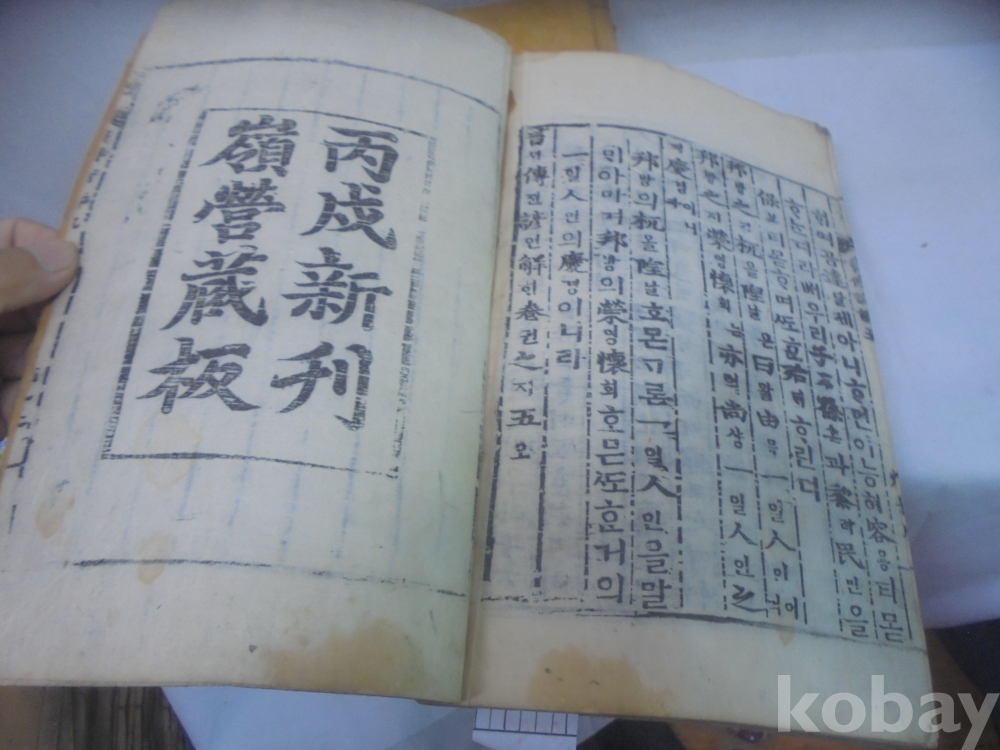 達달케아니ᄒᆞ면이ᄂᆞᆫ能容용티몯
ᄒᆞᄂᆞᆫ디라배우리子ᄌᆞ孫손과黎려民민을
保보티몯ᄒᆞ며ᄯᅩᄒᆞᆫ殆ᄐᆡᄒᆞ린뎌
邦방之지杌올隉날은曰왈由유一일人인이며
邦방之지榮영懷회ᄂᆞᆫ亦역尙샹一일人인之지
慶경이니
邦방의杌올隉날홈ᄋᆞᆫᄀᆞᆯ론一일人인을말
ᄆᆡ아ᄆᆞ며邦방의榮영懷회홈ᄋᆞᆫᄯᅩᄒᆞᆫ거의
一일人인의慶경이니라
書셔傳전諺언解ᄒᆡ卷권之지五오
丙戌新刊
嶺營藏板
kobay